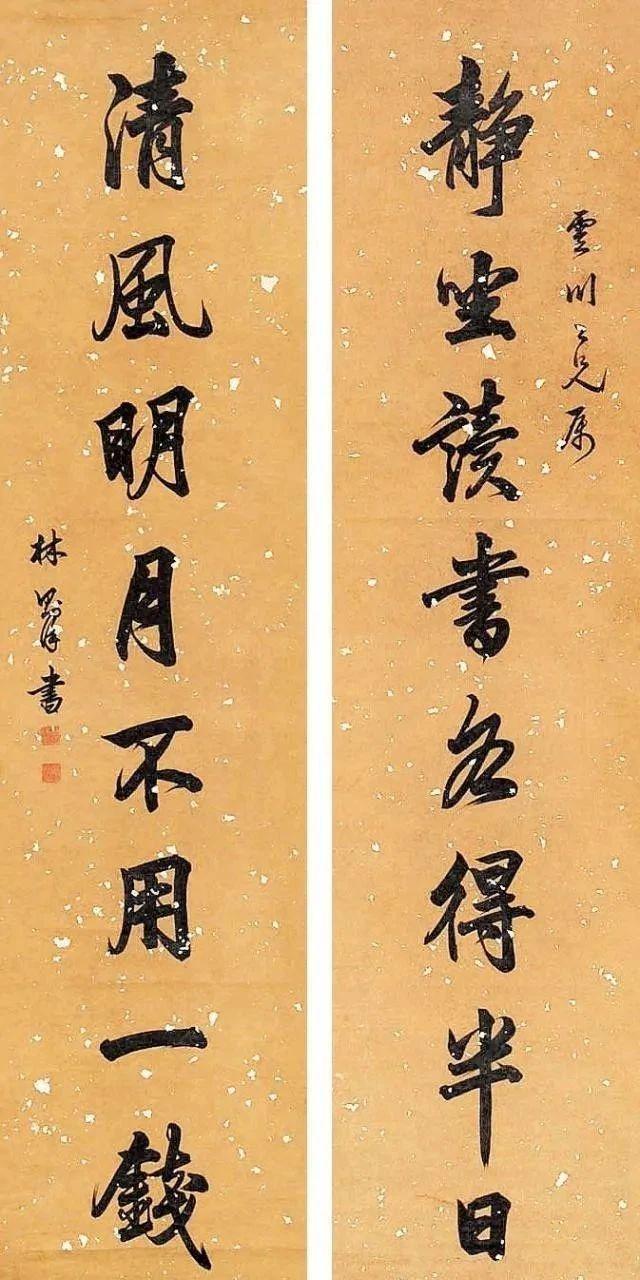 静坐读书各得半日
雲川仁兄属
清風明月不用一錢
林則徐書